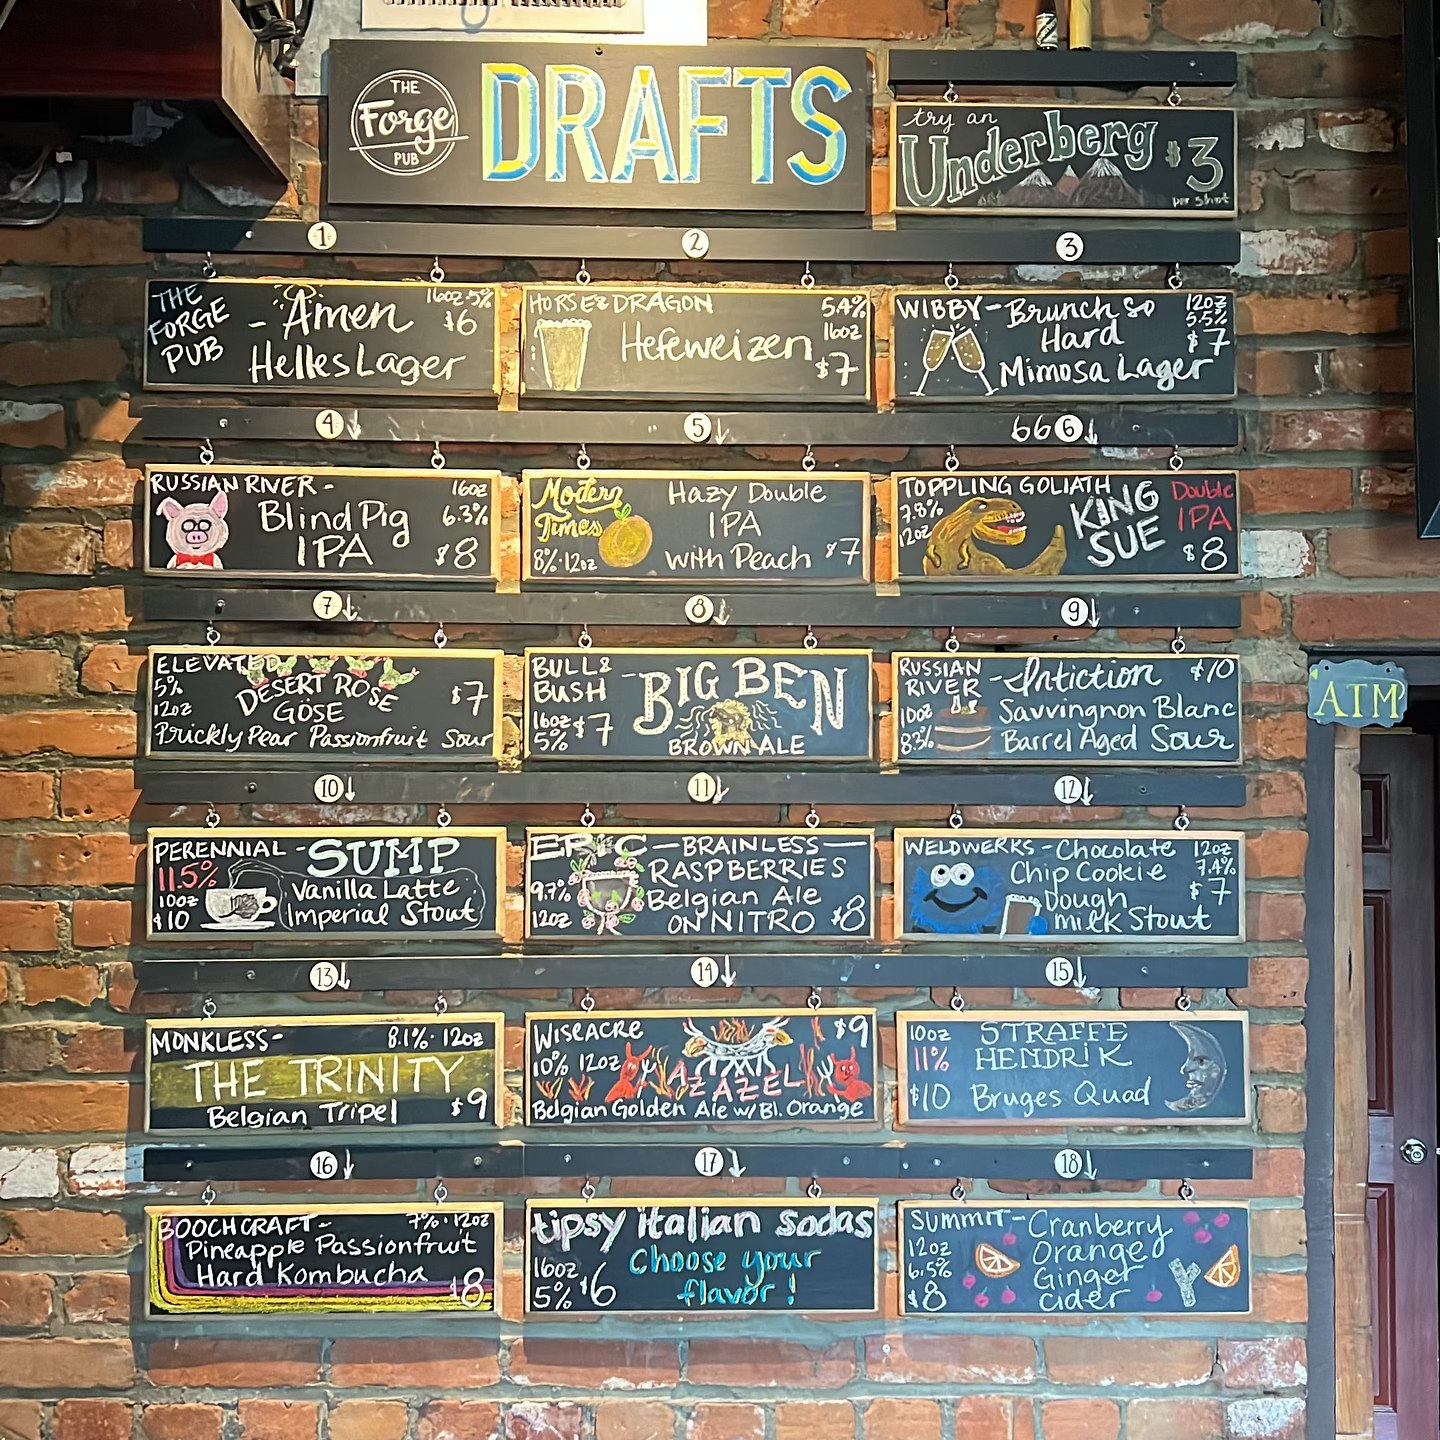 THE
Forge
PUB
DRAFTS
try an
Underberg $3
per shot
1
2
3
THE
FORGE
PUB
- Amen
Helles Lager
16oz 5%
$6
HORSE & DRAGON
Hefeweizen
5.4%
16oz
$7
WIBBY - Brunch So
Hard
Mimosa Lager
12oz
5.5%
$7
4
5
666
RUSSIAN RIVER -
Blind Pig
IPA
16oz
6.3%
$8
Modern
Times
8% · 12oz
Hazy Double
IPA
with Peach
$7
TOPPLING GOLIATH
7.8%
12oz
KING
SUE
Double
IPA
$8
7
8
9
ELEVATED
5%
12oz
DESERT ROSE
GÖSE
$7
Prickly Pear Passionfruit Sour
BULL &
BUSH
16oz
5%
$7
- BIG BEN
BROWN ALE
RUSSIAN
RIVER
10oz
8.3%
- Intiction
$10
Savvingnon Blanc
Barrel Aged Sour
10
11
12
PERENNIAL - SUMP
11.5%
10oz
$10
Vanilla Latte
Imperial Stout
EPIC - BRAINLESS -
RASPBERRIES
Belgian Ale
ON NITRO
9.7%
12oz
$8
WELDWERKS - Chocolate
Chip Cookie
Dough
Milk Stout
12oz
7.4%
$7
13
14
15
MONKLESS -
8.1% · 12oz
THE TRINITY
Belgian Tripel
$9
WISEACRE
10% 12oz
$9
AZAZEL
Belgian Golden Ale w/ Bl. Orange
10oz
11%
$10
STRAFFE
HENDRIK
Bruges Quad
16
17
18
BOOCHCRAFT -
7% · 12oz
Pineapple Passionfruit
Hard Kombucha
$8
tipsy italian sodas
16oz
5%
$6
Choose your
flavor!
SUMMIT - Cranberry
Orange
Ginger
Cider
12oz
6.5%
$8
ATM